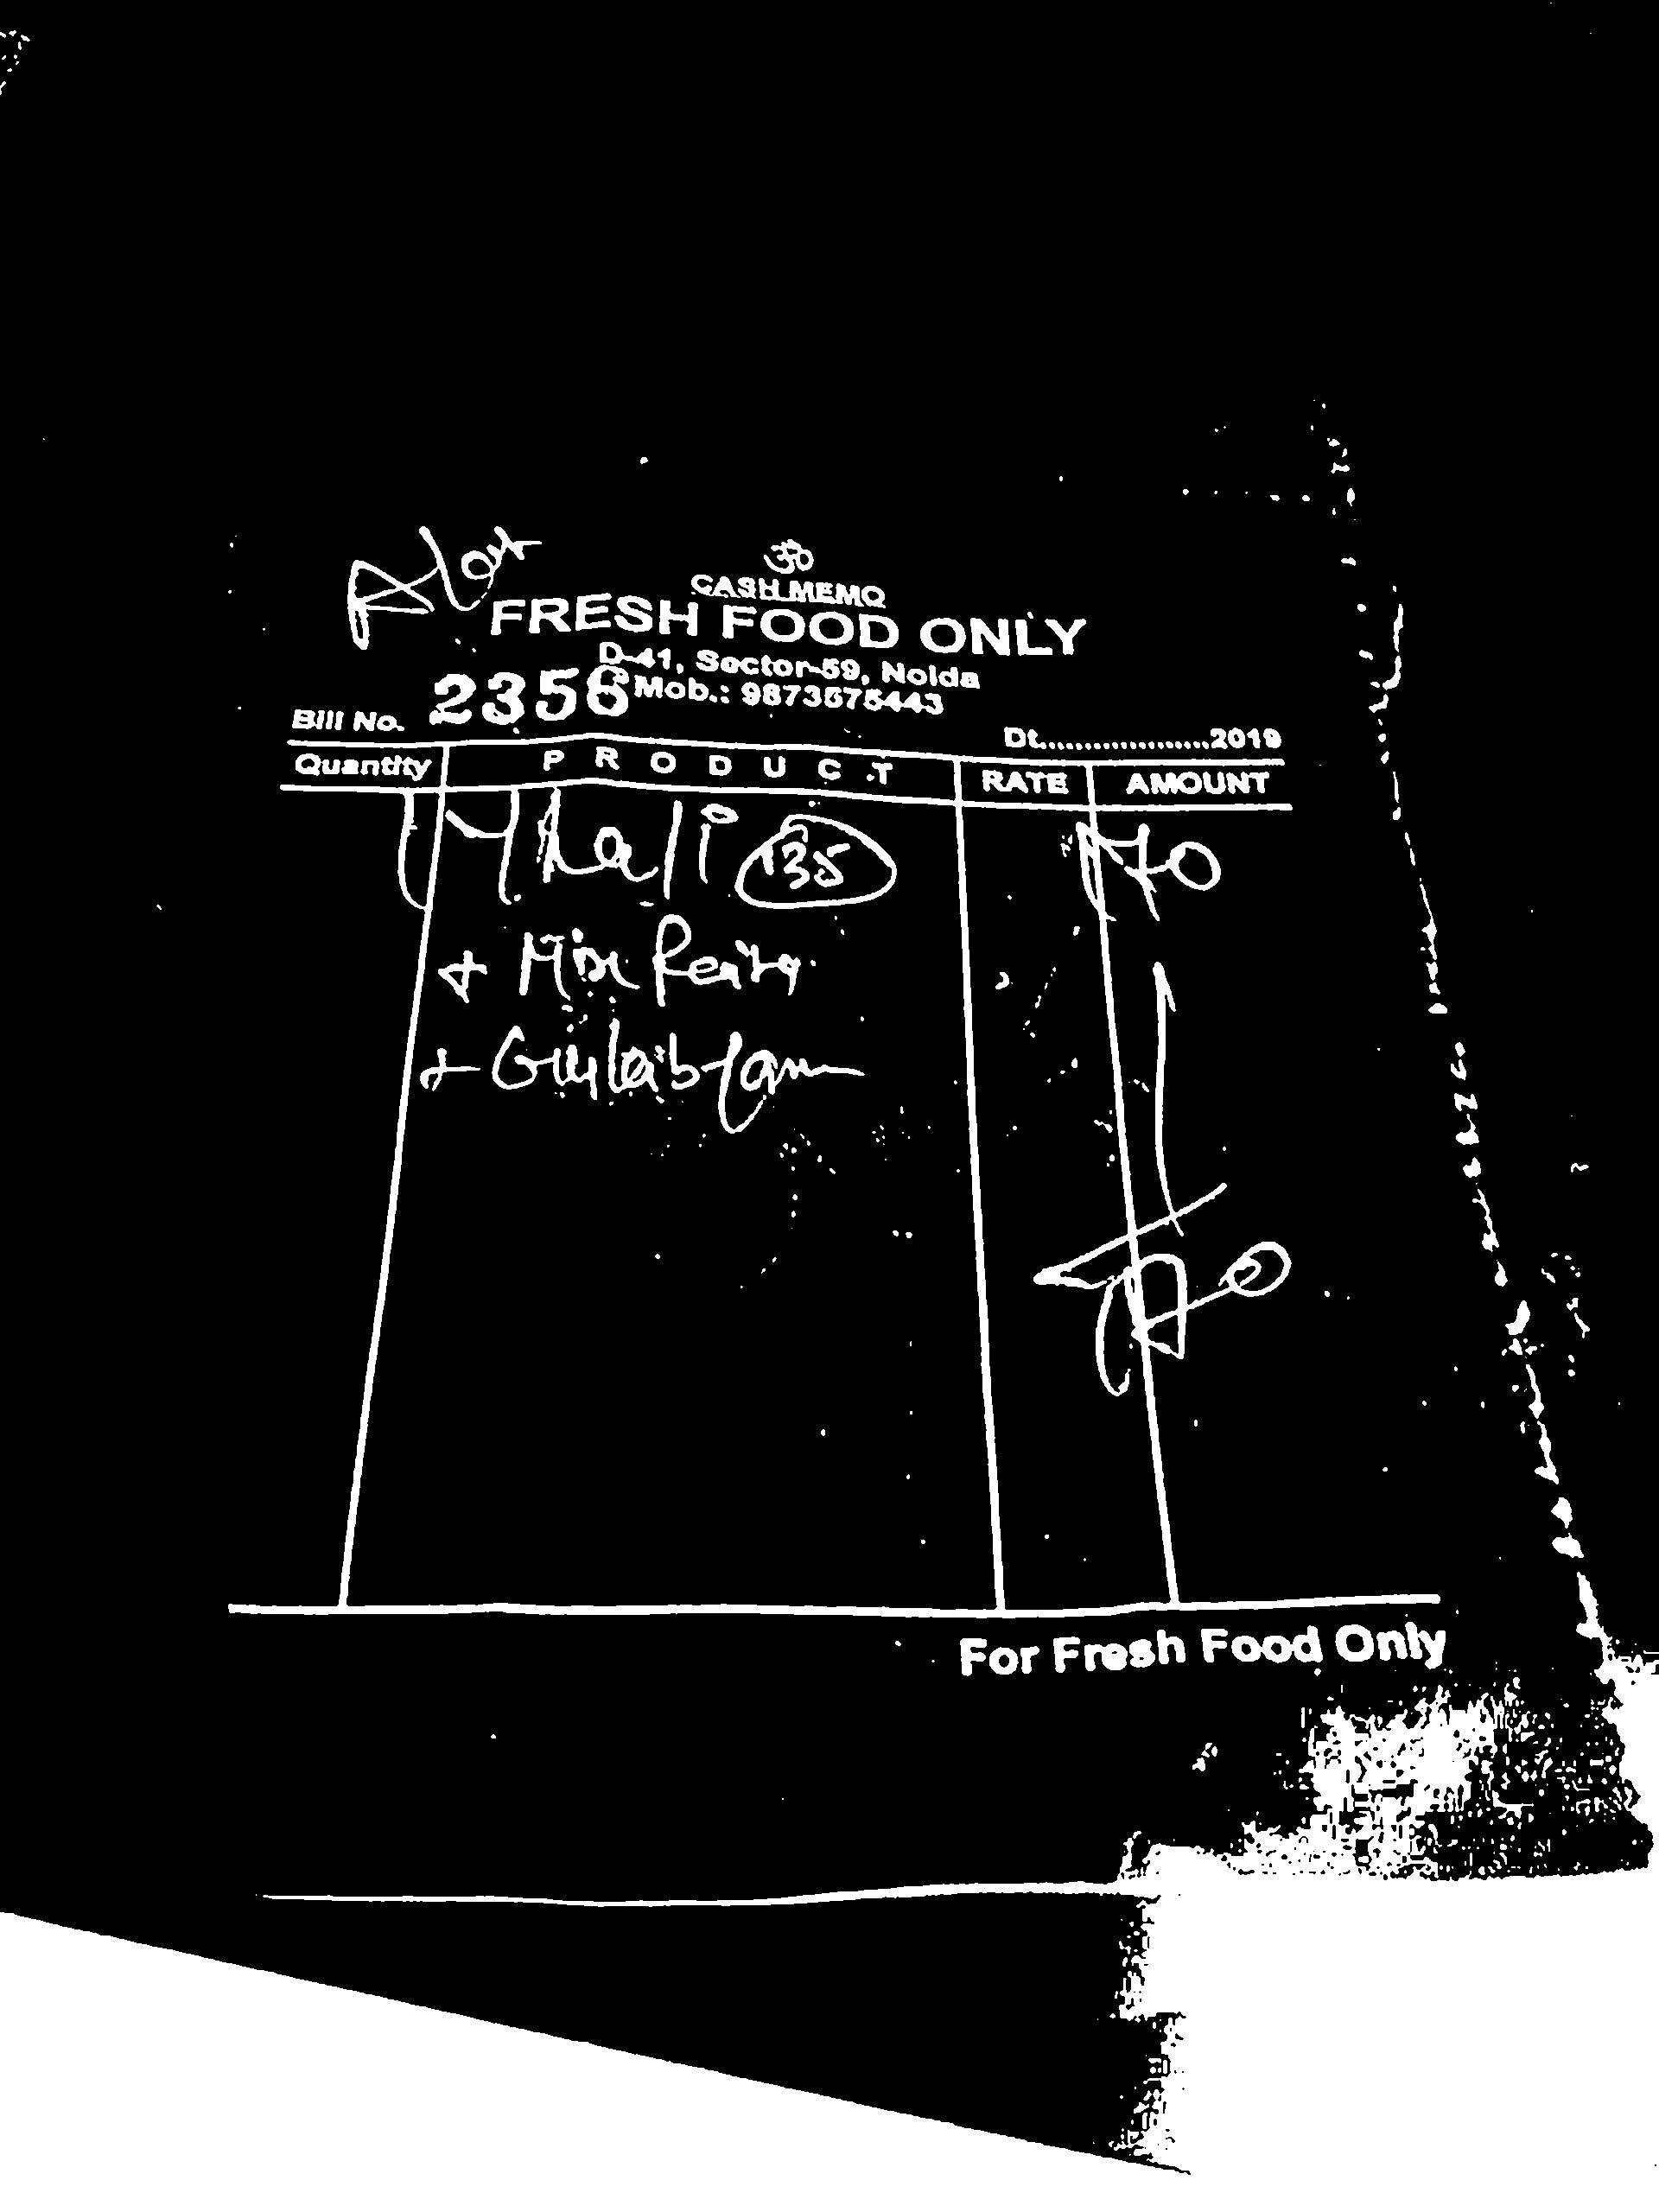 ॐ
CASH MEMO
FRESH FOOD ONLY
D-41, Sector-59, Noida
Mob.: 9873675443
Bill No. 2356
Dt...................2019
Quantity PRODUCT RATE AMOUNT
1 Thali 135 170
+ Mix Raita
+ Gulab Jam
For Fresh Food Only